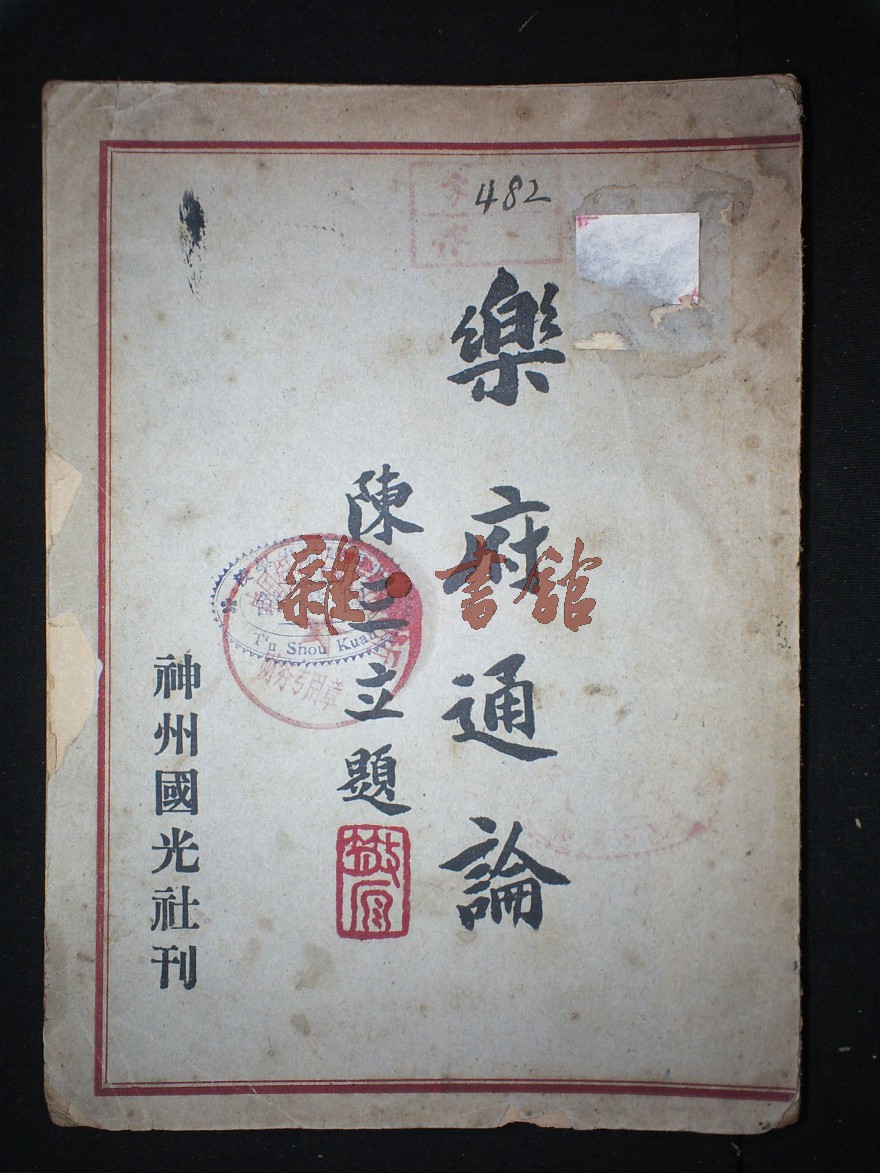 482
樂府通論
陳三立題
神州國光社刊
Tu Shou Kuan
雜·書館